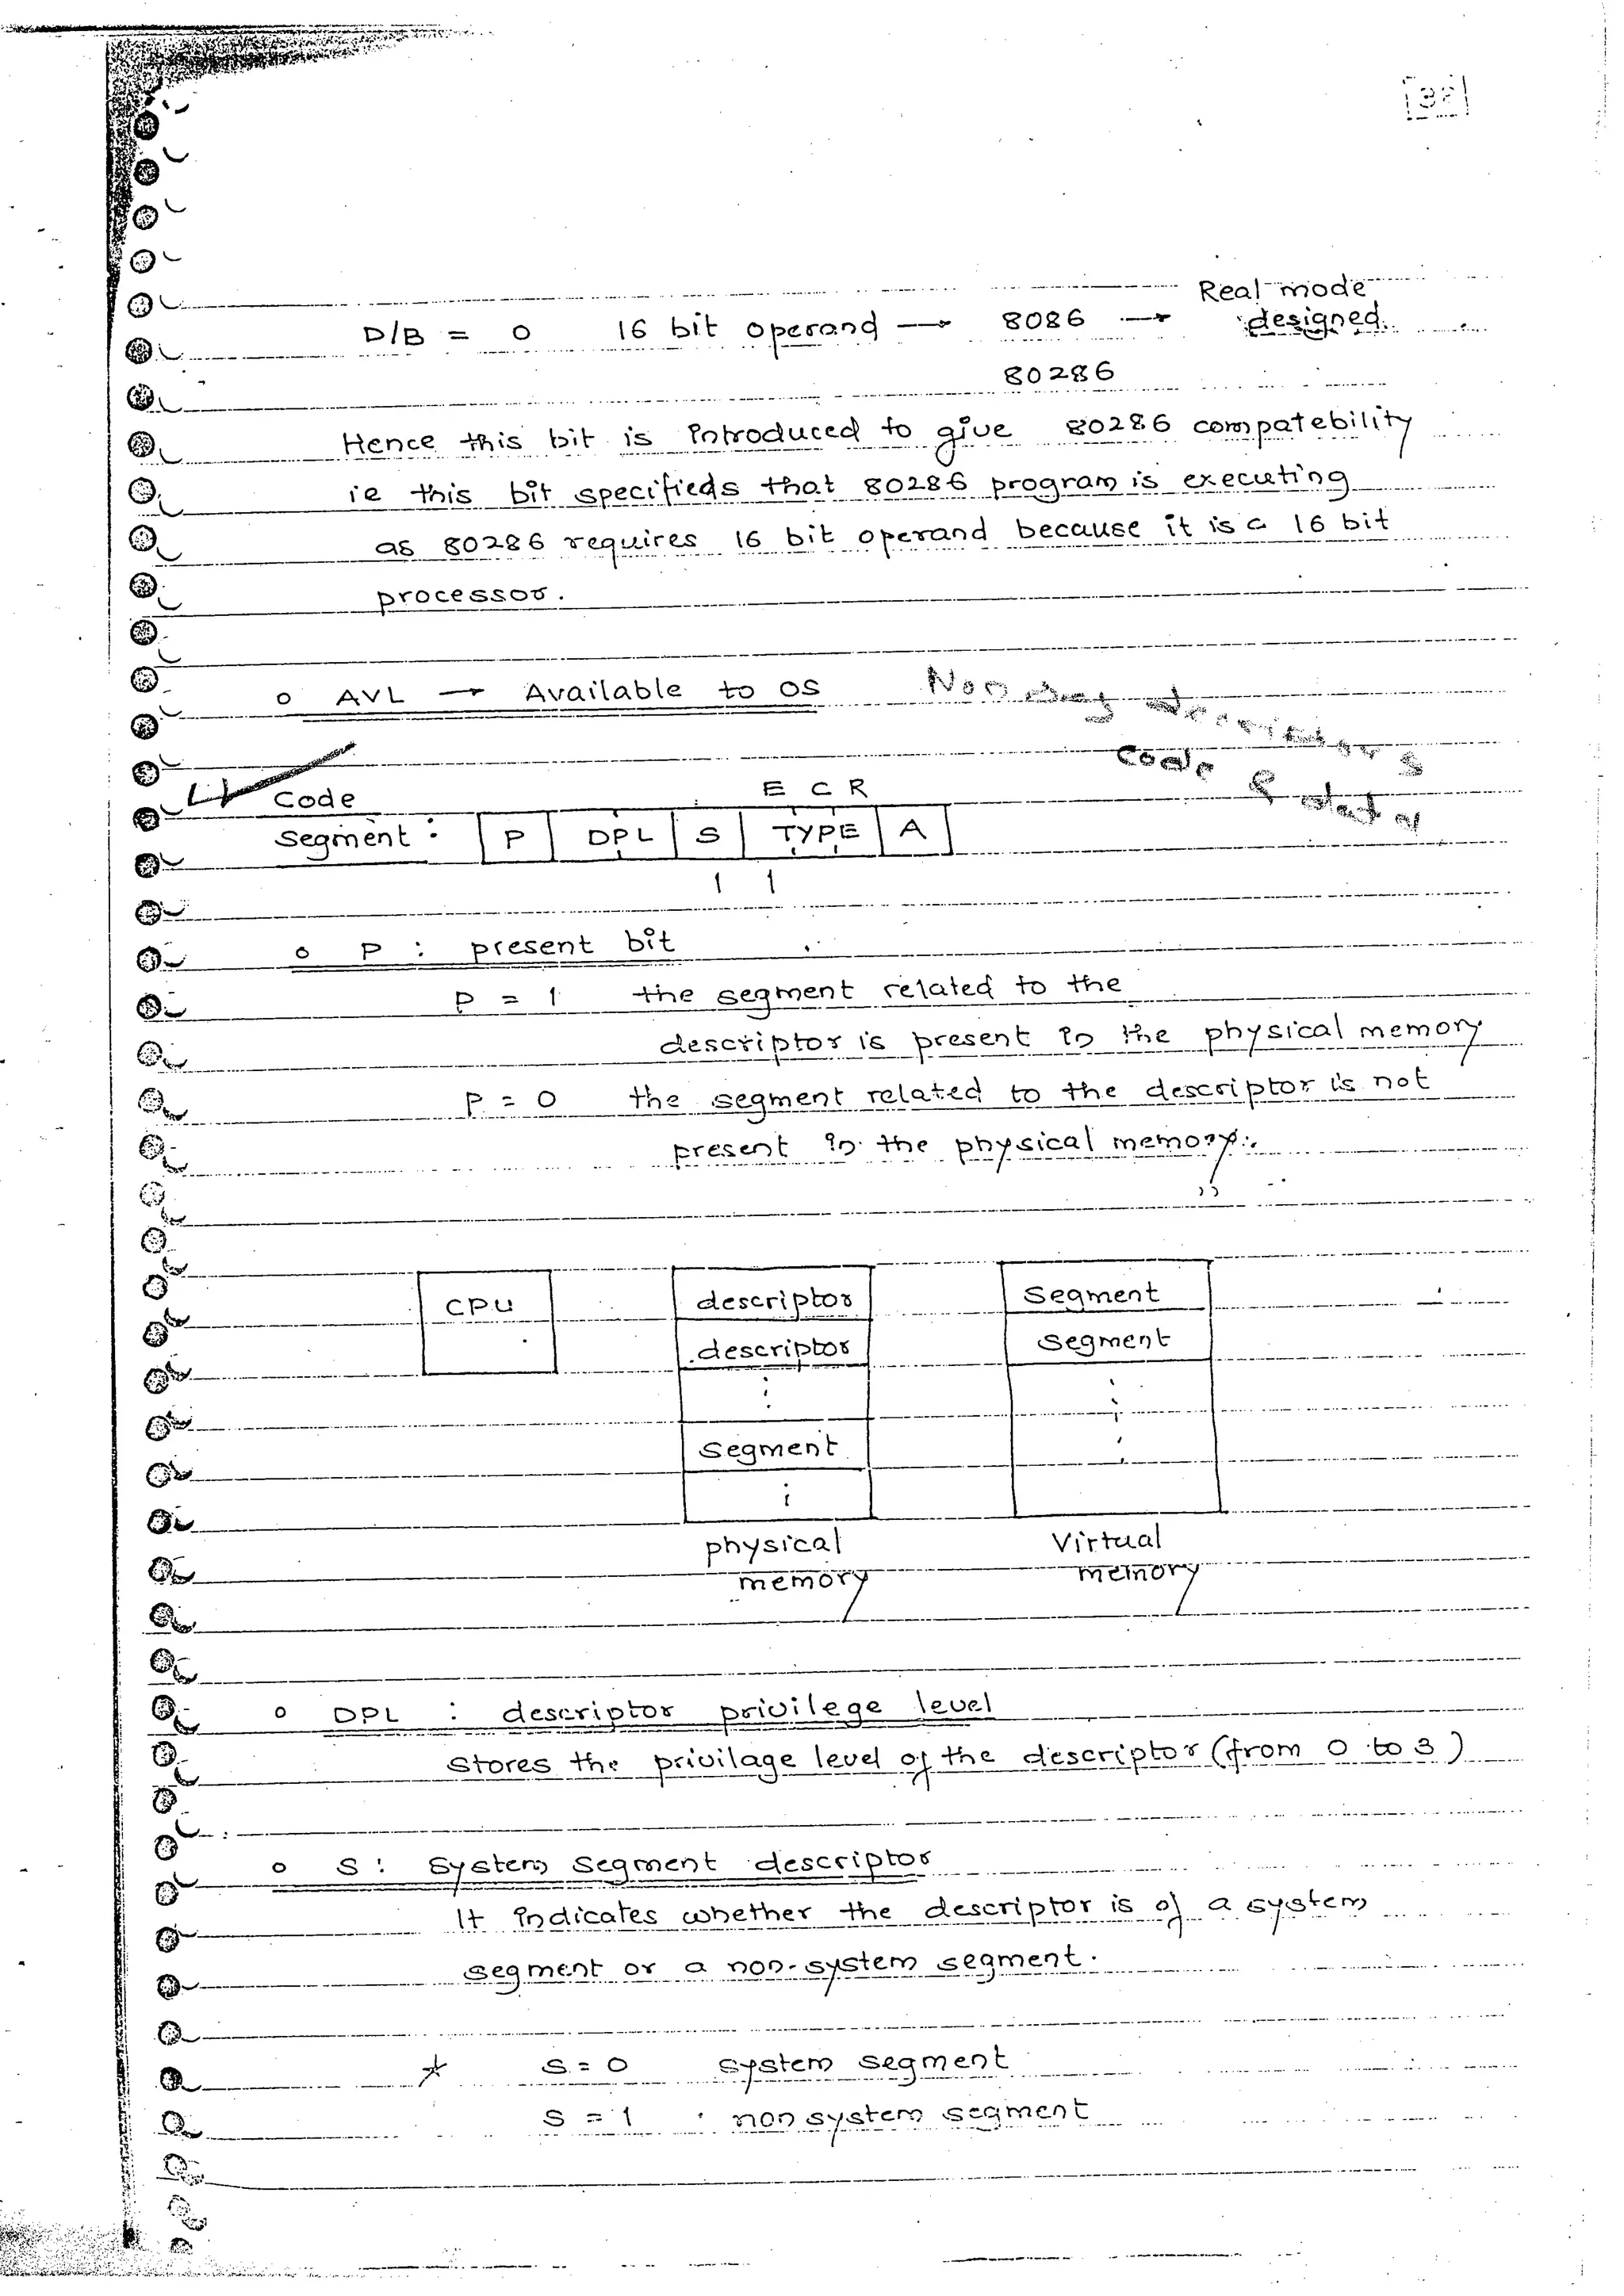 Real mode
D/B = 0 16 bit operand → 8086 → designed.
80286
Hence this bit is introduced to give 80286 compatebility
ie this bit specifieds that 80286 program is executing
as 80286 requires 16 bit operand because it is a 16 bit
processor.
o AVL → Available to OS
Non descriptors
code & data
Code E C R
Segment : P DPL S TYPE A
1 1
o P : present bit
P = 1 the segment related to the
descriptor is present in the physical memory
P = 0 the segment related to the descriptor is not
present in the physical memory.
CPU descriptor Segment
descriptor Segment
Segment
physical Virtual
memory memory
o DPL : descriptor privilege level
Stores the privilage level of the descriptor (from 0 to 3)
o S : System segment descriptor
It indicates whether the descriptor is of a system
segment or a non-system segment.
* S = 0 system segment
S = 1 non system segment